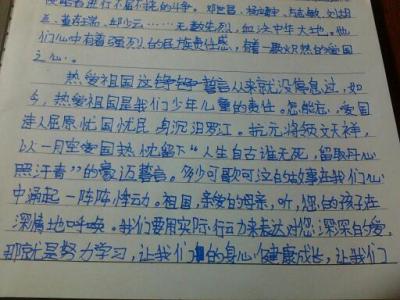 侵略者进行不屈不挠的斗争。邓世昌、杨靖宇、左志敏、刘胡
兰、董存瑞、邱少云……无数先烈,血沃中华大地。他
们心中有着强烈的民族责任感,有着一颗炽热的爱国
之心。
热爱祖国这铮铮誓言从来就没停息过,如
今,热爱祖国是我们少年儿童的责任。怎能忘,爱国
诗人屈原忧国忧民身沉汨罗江。抗元将领文天祥,
以一片至爱国热忱留下“人生自古谁无死,留取丹心
照汗青”的豪迈誓言。多少可歌可泣的故事在我们心
中涌起一阵阵悸动。祖国,亲爱的母亲,听,您的孩子在
深情地呼唤。我们要用实际行动来表达对您深深的爱,
那就是努力学习,让我们的身心健康成长,让我们